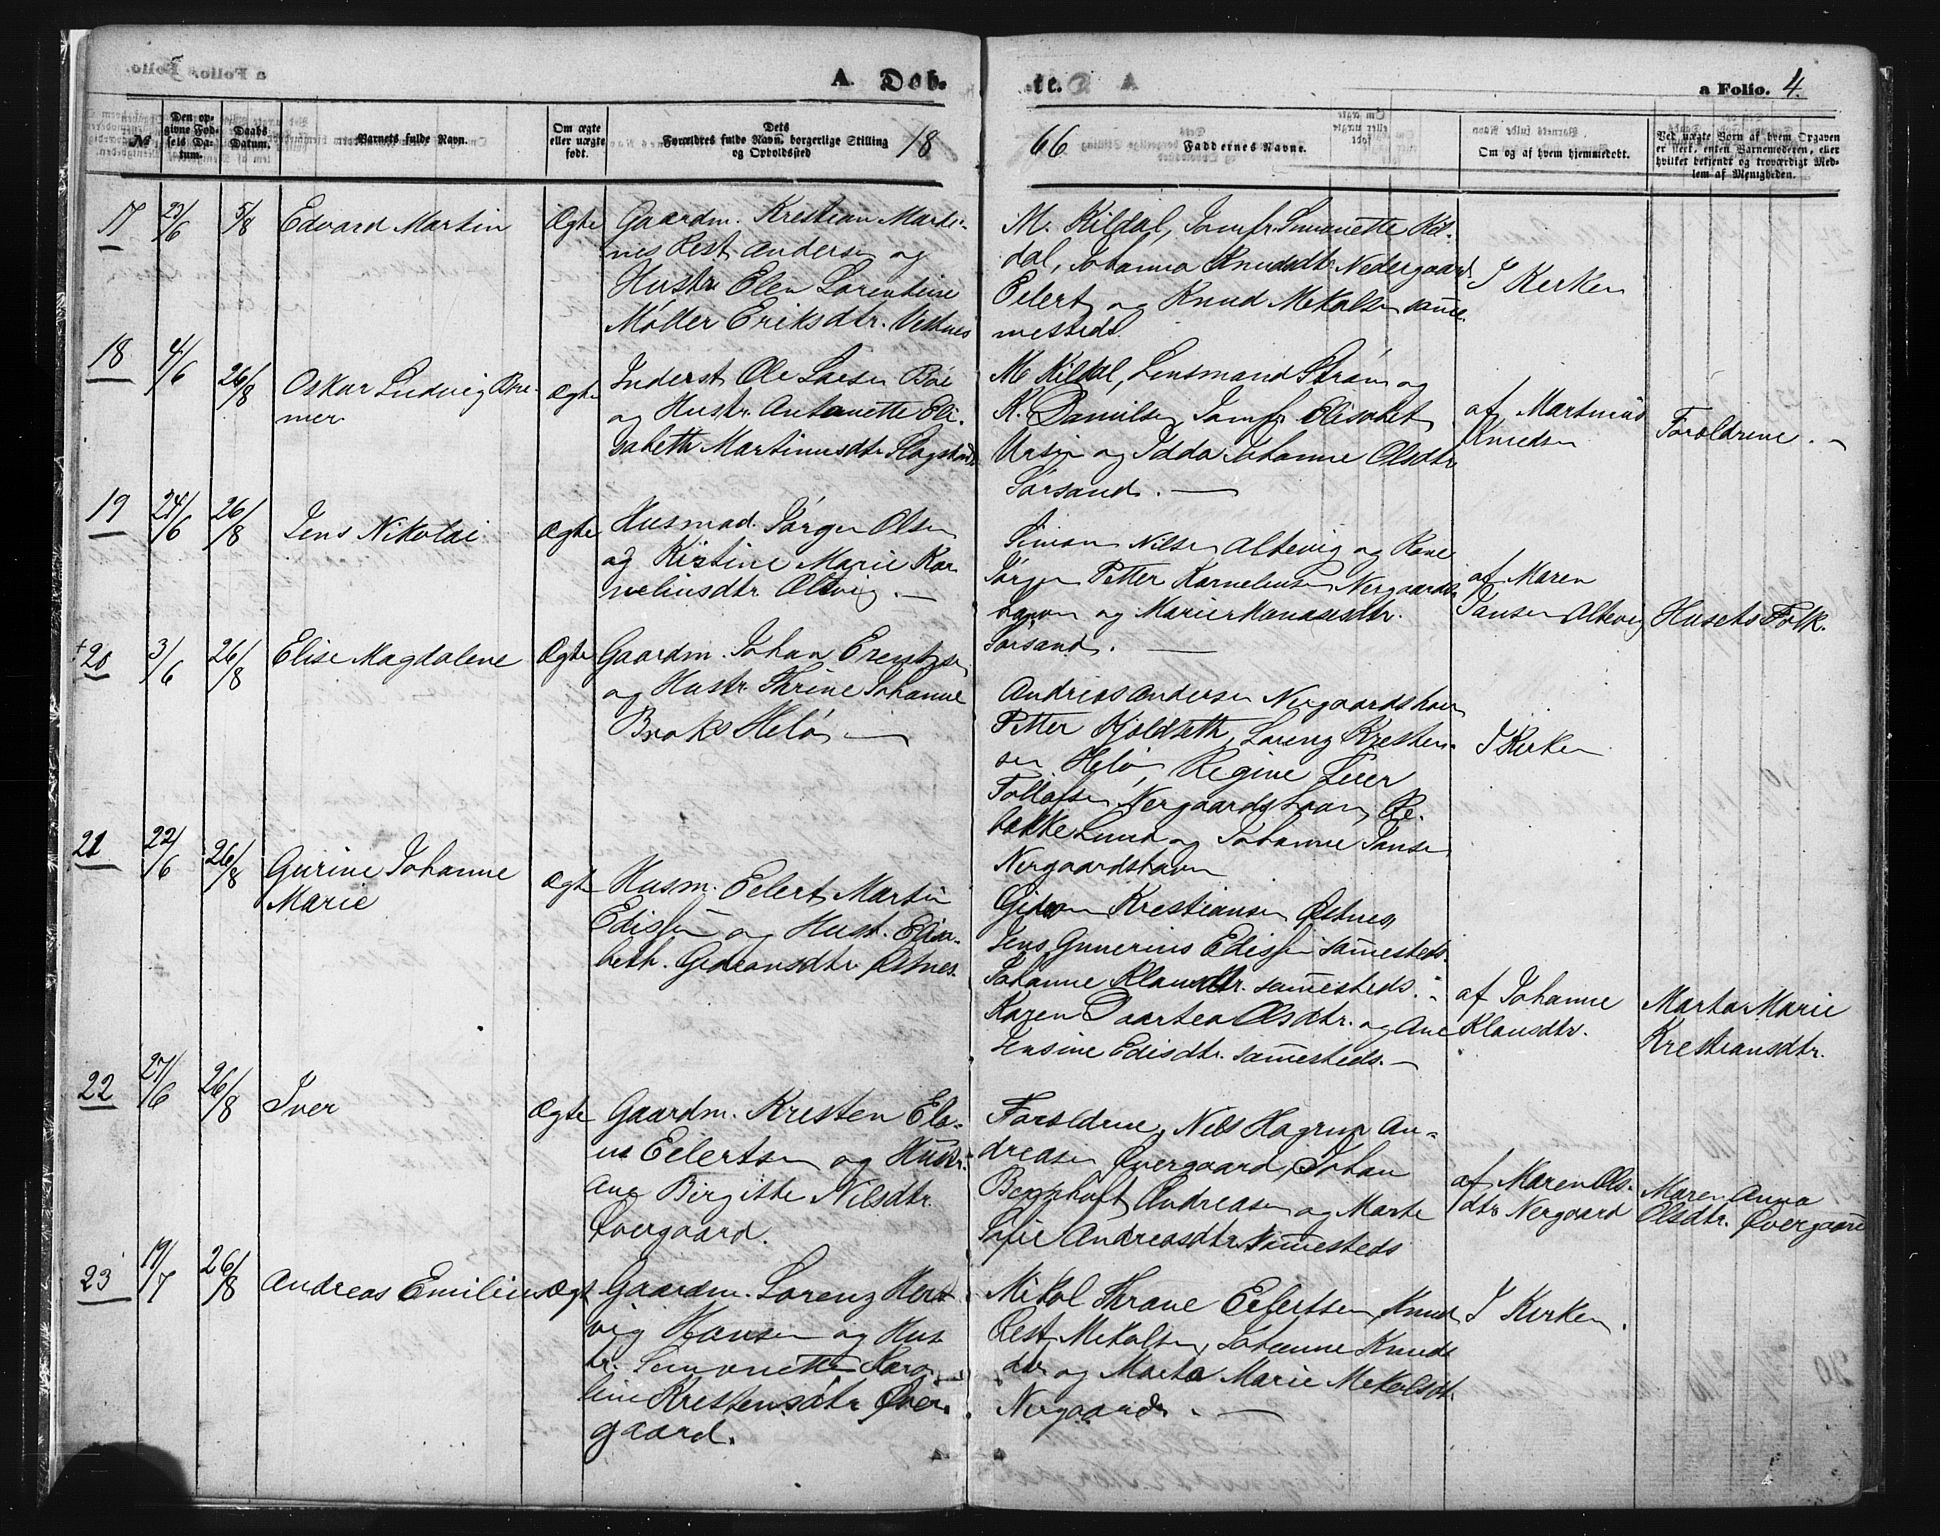 A. Døb-
te.
a Folio. 4.
18
66
№
Den op-
givne Fød-
sels Da-
tum.
Daabs
Datum.
Barnets fulde Navn.
Om ægte
eller uægte
født.
Dets
Forældres fulde Navn, borgerlige Stilling
og Opholdssted
Faddernes Navne.
Om og af hvem hjemmedøbt.
Ved uægte Børn af hvem Opgaven
er skeet, enten Barnemoderen, eller
hvilket bekjendt og troværdigt Med-
lem af Menigheden.
17
23/6
5/8
Edvard Martin
Ægte
Gaardm. Kristian Marti-
nes Rest Andersen og
Hustr. Elen Lorentine
Møller Eriksdtr. Vestnes
M. Kildal, Jomfr. Simonette Kil-
dal, Johanna Knudsdtr. Nedergaard
Eilert og Knud Mekalsen samme-
mesteds.
I Kirken
18
4/6
26/8
Oskar Ludvig Bre-
mer
Ægte
Inderst Ole Larsen Böe
og Hustr. Antonette Eli-
sabeth Martinusdtr. Slogstad
M. Kildal, Lensmand Strøm og
K. Danielsen, Jomfr. Elisabet
Ursin og Idda Johanne Olsdtr.
Sørsand. —
af Martinus
Knudsen
Foroldrene. —
19
24/6
26/8
Jens Nikolai
Ægte
Husmad. Jørgen Olsen
og Kistine Marie Kor
neliusdtr. Altvig. —
Simon Nilsen Altevig og Kone
Jørgen Petter Korneliusen Nergaards
havn og Marie Manassesdtr.
Sørsand. —
af Maren
Jansen Altevig
Husets Folk.
+20
3/6
26/8
Elise Magdalene
Ægte
Gaardm. Johan Erentzen
og Hustr. Thrine Johanne
Broks Helø —
Andreas Andersen Nergaardshavn
Petter Kjeldseth, Lorenz Kresten-
sen Helø, Regine Feier
Tollofsen Nergaardshavn, Re-
bekke Lund og Johanne Jansen
Nergaardshavn
I Kirken
21
22/6
26/8
Gurine Johanne
Marie
Ægte
Husm. Eilert Martin
Edissen og Hust. Elisa-
beth. Gideonsdtr. Østnes.
Gideon Kristiansen Østnes,
Jens Gunerius Edissen samesteds.
Johanne Klausdtr. samesteds. -
Karen Daartea Olsdtr. og Ane
Jensine Edisdtr. samesteds. —
af Johanne
Klausdtr.
Marta Marie
Krestiansdtr.
22
27/6
26/8
Iver
Ægte
Gaardm. Kristen Ela-
us Eilertsen og Hustr.
Ane Birgitte Nilsdtr.
Øvergaard.
Foroldrene, Nils Hagrup An-
dreasen Øvergaard, Johan
Bernhoft Andreasen og Marte
Sofie Andreasdtr. samesteds
af Maren Ols-
dtr. Nergaard
Maren Anna
Olsdtr. Øvergaard
23
19/7
26/8
Andreas Emilius
Ægt
Gaardm. Lorenz Hert
vig Hansen og Hus
tr. Simonette Karo-
line Kristensdtr. Øver-
gaard.
Mikal Thrane Eilertsen, Knud
Rest Mikalsen, Johanne Knuds
dtr. og Marta Marie Mekalsdtr.
Nergaard. —
I Kirken.